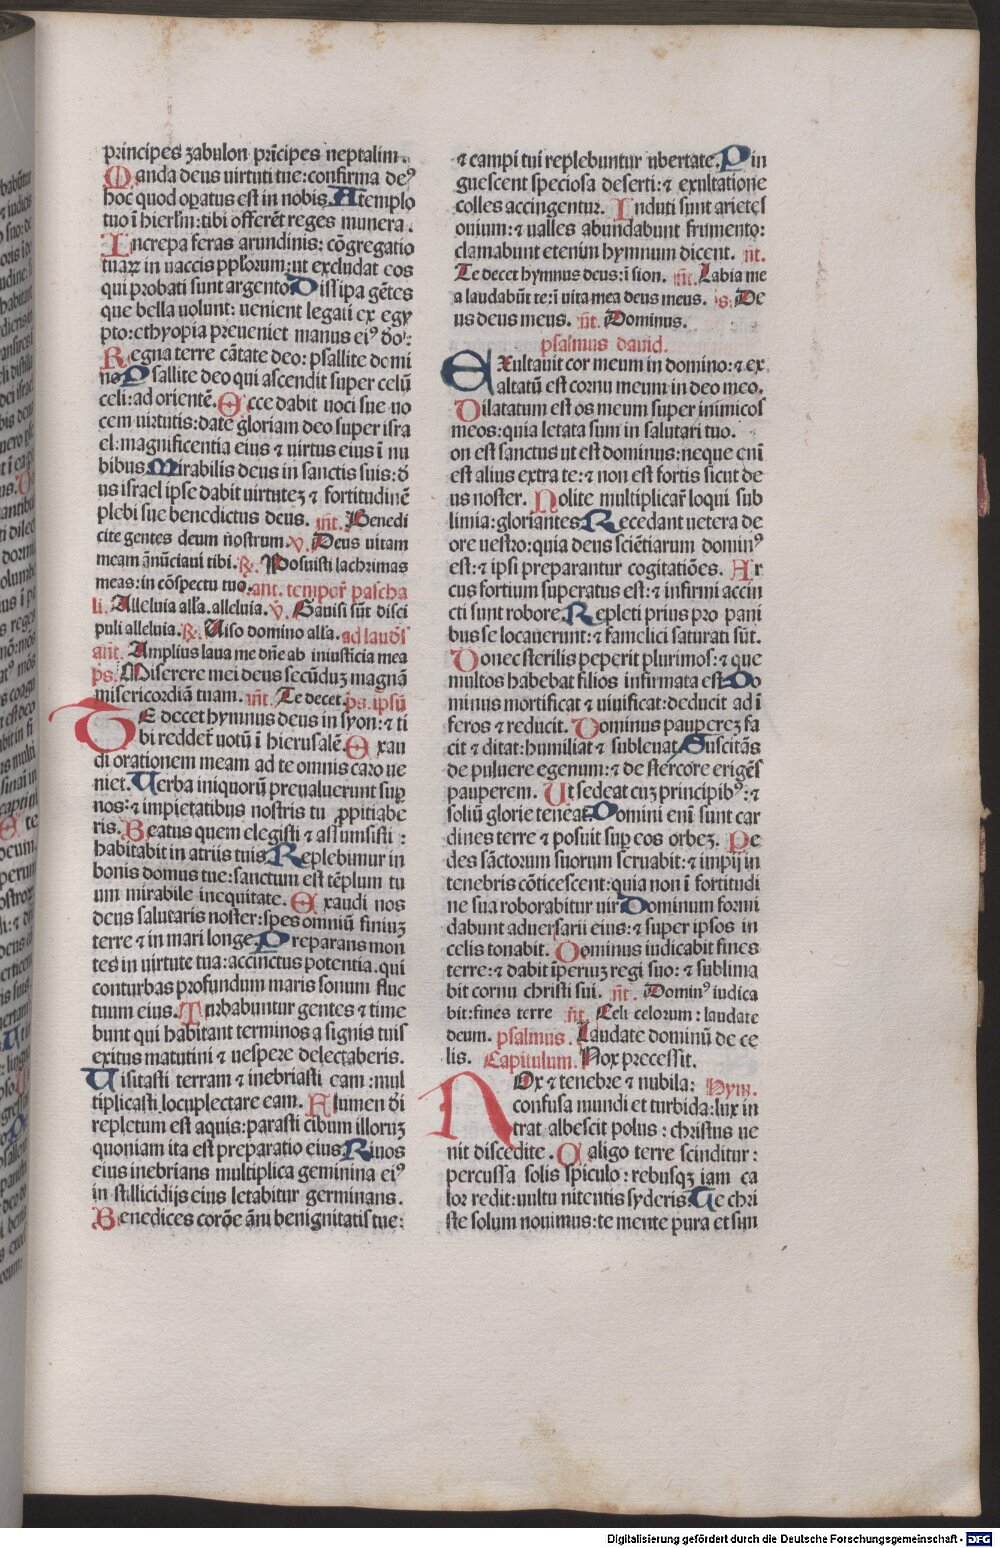 principes zabulon prīcipes neptalim.
Manda deus virtuti tue: confirma deꝰ
hoc quod opatus est in nobis. A templo
tuo ī hierl̄m: tibi offerēt reges munera.
Increpa feras arundinis: cōgregatio
tuaꝝ in vaccis ppl̄orum: ut excludat eos
qui probati sunt argento. Dissipa gētes
que bella volunt: venient legati ex egy
pto: ethyopia preveniet manus eiꝰ deo:
Regna terre cātate deo: psallite domi
no. Psallite deo qui ascendit super celū
celi: ad orientē. Ecce dabit voci sue vo
cem virtutis: date gloriam deo super isra
el: magnificentia eius ⁊ virtus eius ī nu
bibus. Mirabilis deus in sanctis suis: d̄
us israel ipse dabit virtuteꝫ ⁊ fortitudinē
plebi sue benedictus deus. an̄t. Benedi
cite gentes deum nostrum. v. Deus vitam
meam ānūciavi tibi. ℞. Posuisti lachrimas
meas: in cōspectu tuo. ant. tempor̄ pascha
li. Alleluia all̄a. alleluia. v. Gavisi sūt disci
puli alleluia. ℞. Viso domino all̄a. ad laudes
an̄t. Amplius lava me dn̄e ab iniusticia mea
ps. Miserere mei deus secūduꝫ magnā
misericordiā tuam. an̄t. Te decet. ps. ipsū
TE decet hymnus deus in syon: ⁊ ti
bi reddet̄ votū ī hierusalē. Exau
di orationem meam ad te omnis caro ve
niet. Verba iniquorū prevaluerunt suꝑ
nos: ⁊ impietatibus nostris tu ꝓpitiabe
ris. Beatus quem elegisti ⁊ assumsisti:
habitabit in atriis tuis. Replebimur in
bonis domus tue: sanctum est tēplum tu
um mirabile in equitate. Exaudi nos
deus salutaris noster: spes omniū finiuꝫ
terre ⁊ in mari longe. Preparans mon
tes in virtute tua: accinctus potentia. qui
conturbas profundum maris sonum fluc
tuum eius. Turbabuntur gentes ⁊ time
bunt qui habitant terminos a signis tuis
exitus matutini ⁊ vespere delectaberis.
Visitasti terram ⁊ inebriasti eam: mul
tiplicasti locupletare eam. Flumen d̄i
repletum est aquis: parasti cibum illoruꝫ
quoniam ita est preparatio eius. Rivos
eius inebrians multiplica geminina eiꝰ
in stillicidijs eius letabitur germinans.
Benedices corōe āni benignitatis tue:
⁊ campi tui replebuntur ubertate. Pin
guescent speciosa deserti: ⁊ exultatione
colles accingentur. Induti sunt arietes
ovium: ⁊ valles abundabunt frumento:
clamabunt etenim hymnum dicent. an̄t.
Te decet hymnus deus: ī sion. an̄t. Labia me
a laudabūt te: ī vita mea deus meus. ps. De
us deus meus. an̄t. Dominus.
psalmus david.
EXultavit cor meum in domino: ⁊ ex
altatū est cornu meum in deo meo.
Dilatatum est os meum super inimicos
meos: quia letata sum in salutari tuo.
on est sanctus ut est dominus: neque enī
est alius extra te: ⁊ non est fortis sicut de
us noster. Nolite multiplicar̄ loqui sub
limia: gloriantes. Recedant vetera de
ore vestro: quia deus sciētiarum dominꝰ
est: ⁊ ipsi preparantur cogitatiōes. Ar
cus fortium superatus est: ⁊ infirmi accin
cti sunt robore. Repleti prius pro pani
bus se locaverunt: ⁊ famelici saturati sūt.
Donec sterilis peperit plurimos: ⁊ que
multos habebat filios infirmata est. Do
minus mortificat ⁊ vivificat: deducit ad ī
feros ⁊ reducit. Dominus pauperez fa
cit ⁊ ditat: humiliat ⁊ sublevat. Suscitās
de pulvere egenum: ⁊ de stercore erigēs
pauperem. Ut sedeat cuꝫ principibꝰ: ⁊
soliū glorie teneat. Domini enī sunt car
dines terre ⁊ posuit suꝑ eos orbeꝫ. Pe
des sāctorum suorum servabit: ⁊ impij in
tenebris cōticescent: quia non ī fortitudi
ne sua roborabitur vir. Dominum formi
dabunt adversarii eius: ⁊ super ipsos in
celis tonabit. Dominus iudicabit fines
terre: ⁊ dabit īperiuꝫ regi suo: ⁊ sublima
bit cornu christi sui. an̄t. Dominꝰ iudica
bit: fines terre an̄t. Celi celorum: laudate
deum. psalmus. Laudate dominū de ce
lis. Capitulum. Nox precessit.
NOx ⁊ tenebre ⁊ nubila: Hym.
confusa mundi et turbida: lux in
trat albescit polus: christus ve
nit discedite. Caligo terre scinditur:
percussa solis spiculo: rebusqꝫ iam ca
lor redit: vultu nitentis syderis. Te chri
ste solum novimus: te mente pura et sim
Digitalisierung gefördert durch die Deutsche Forschungsgemeinschaft - DFG